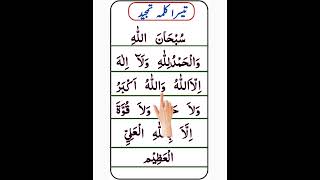 تیسرا کلمہ تمجید
سُبْحَانَ اللهِ
وَالْحَمْدُلِلّٰهِ وَلَآ اِلٰهَ
اِلَّااللهُ وَاللهُ اَكْبَرُ
وَلَا وَلَا قُوَّةَ
اِلَّا بِاللهِ الْعَلِيِّ
الْعَظِيْمِ